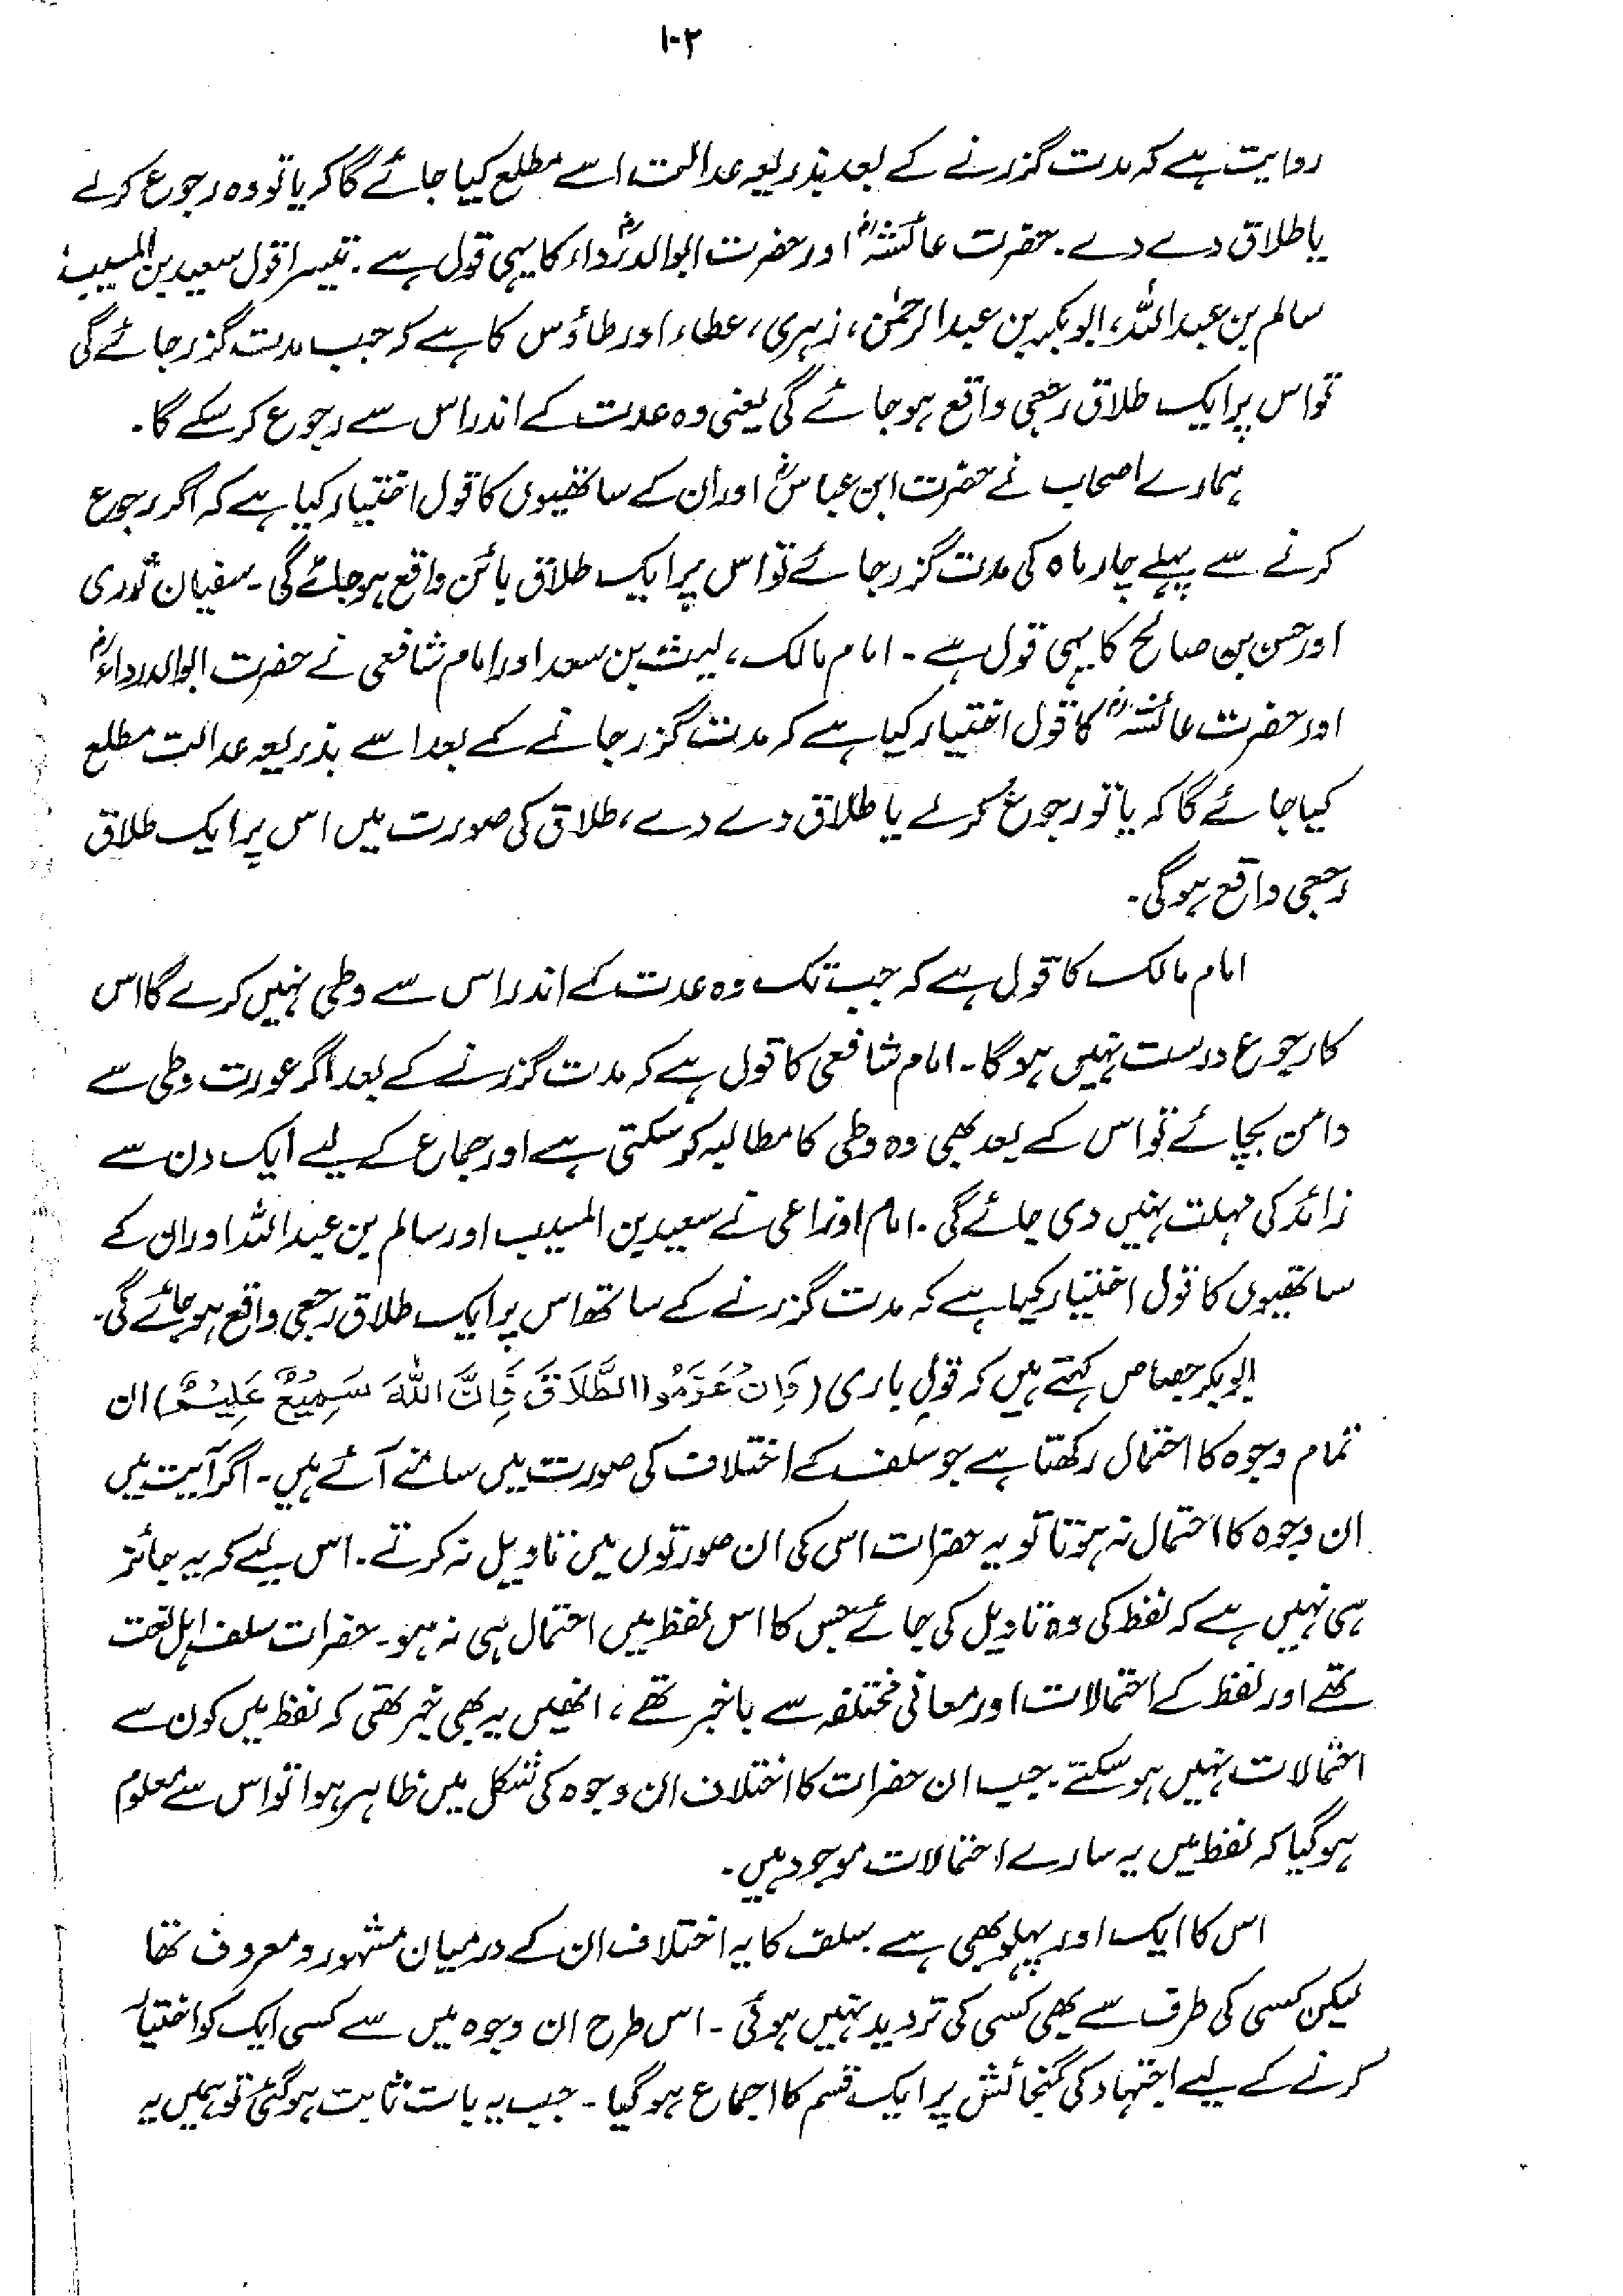 ۱۰۲
روایت ہے کہ مدت گزرنے کے بعد بذریعہ عدالت اسے مطلع کیا جائے گا کہ یا تو وہ رجوع کرلے
یا طلاق دے دے۔ حضرت عائشہؓ اور حضرت ابوالدرداءؓ کا یہی قول ہے۔ تیسرا قول سعید بن المسیب،
سالم بن عبداللہ، ابوبکر بن عبدالرحمٰن، زہری، عطاء اور طاؤس کا ہے کہ جب مدت گزر جائے گی
تو اس پر ایک طلاق رجعی واقع ہو جائے گی یعنی وہ عدت کے اندر اس سے رجوع کر سکے گا۔
ہمارے اصحاب نے حضرت ابن عباسؓ اور ان کے ساتھیوں کا قول اختیار کیا ہے کہ اگر رجوع
کرنے سے پہلے چار ماہ کی مدت گزر جائے تو اس پر ایک طلاق بائن واقع ہو جائے گی۔ سفیان ثوری
اور حسن بن صالح کا یہی قول ہے۔ امام مالک، لیث بن سعد اور امام شافعی نے حضرت ابوالدرداءؓ
اور حضرت عائشہؓ کا قول اختیار کیا ہے کہ مدت گزر جانے کے بعد اسے بذریعہ عدالت مطلع
کیا جائے گا کہ یا تو رجوع کرلے یا طلاق دے دے، طلاق کی صورت میں اس پر ایک طلاق
رجعی واقع ہوگی۔
امام مالک کا قول ہے کہ جب تک وہ عدت کے اندر اس سے وطی نہیں کرے گا اس
کا رجوع درست نہیں ہوگا۔ امام شافعی کا قول ہے کہ مدت گزرنے کے بعد اگر عورت وطی سے
دامن بچائے تو اس کے بعد بھی وہ وطی کا مطالبہ کر سکتی ہے اور جماع کے لیے ایک دن سے
زائد کی مہلت نہیں دی جائے گی۔ امام اوزاعی نے سعید بن المسیب اور سالم بن عبداللہ اور ان کے
ساتھیوں کا قول اختیار کیا ہے کہ مدت گزرنے کے ساتھ اس پر ایک طلاق رجعی واقع ہو جائے گی۔
ابوبکر جصاص کہتے ہیں کہ قولِ باری (وَاِنْ عَزَمُوا الطَّلَاقَ فَاِنَّ اللّٰهَ سَمِيْعٌ عَلِيْمٌ) ان
تمام وجوہ کا احتمال رکھتا ہے جو سلف کے اختلاف کی صورت میں سامنے آئے ہیں۔ اگر آیت میں
ان وجوہ کا احتمال نہ ہوتا تو یہ حضرات اس کی ان صورتوں میں تاویل نہ کرتے۔ اس لیے کہ یہ جائز
ہی نہیں ہے کہ لفظ کی وہ تاویل کی جائے جس کا اس لفظ میں احتمال ہی نہ ہو۔ حضرات سلف اہل لغت
تھے اور لفظ کے احتمالات اور معانی مختلفہ سے باخبر تھے، انھیں یہ بھی خبر تھی کہ لفظ میں کون سے
احتمالات نہیں ہو سکتے۔ جب ان حضرات کا اختلاف ان وجوہ کی شکل میں ظاہر ہوا تو اس سے معلوم
ہوگیا کہ لفظ میں یہ سارے احتمالات موجود ہیں۔
اس کا ایک اور پہلو بھی ہے۔ سلف کا یہ اختلاف ان کے درمیان مشہور و معروف تھا
لیکن کسی کی طرف سے بھی کسی کی تردید نہیں ہوئی۔ اس طرح ان وجوہ میں سے کسی ایک کو اختیار
کرنے کے لیے اجتہاد کی گنجائش پر ایک قسم کا اجماع ہوگیا۔ جب یہ بات ثابت ہوگئی تو ہمیں یہ